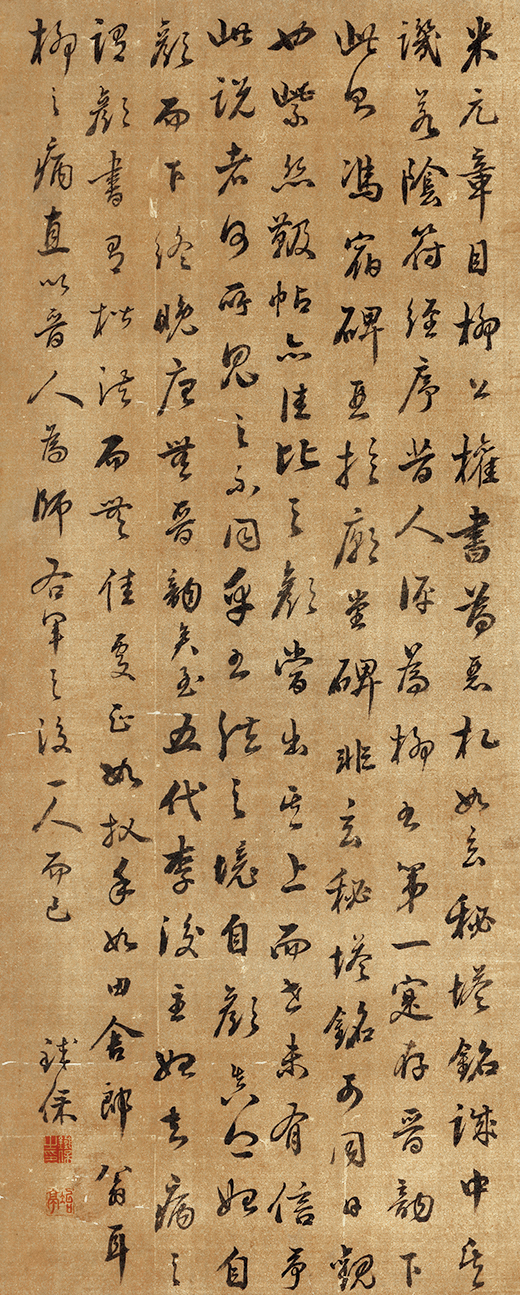 米元章目柳公權書為惡札如玄秘塔銘誠中其
譏若陰符經序昔人評為柳書第一寔存晉韻下
此即馮宿碑亞於廟堂碑非玄秘塔銘可同日觀
也紫絲靸帖亦佳比之顏當出其上而世未有信予
此說者何所見之不同乎書法之壞自顏真卿始自
顏而下終晚唐無晉韻矣至五代李後主始知病之
謂顏書有楷法而無佳處正如扠手如田舍郎翁耳
柳之病直以晉人為師右軍之後一人而已
鐵保